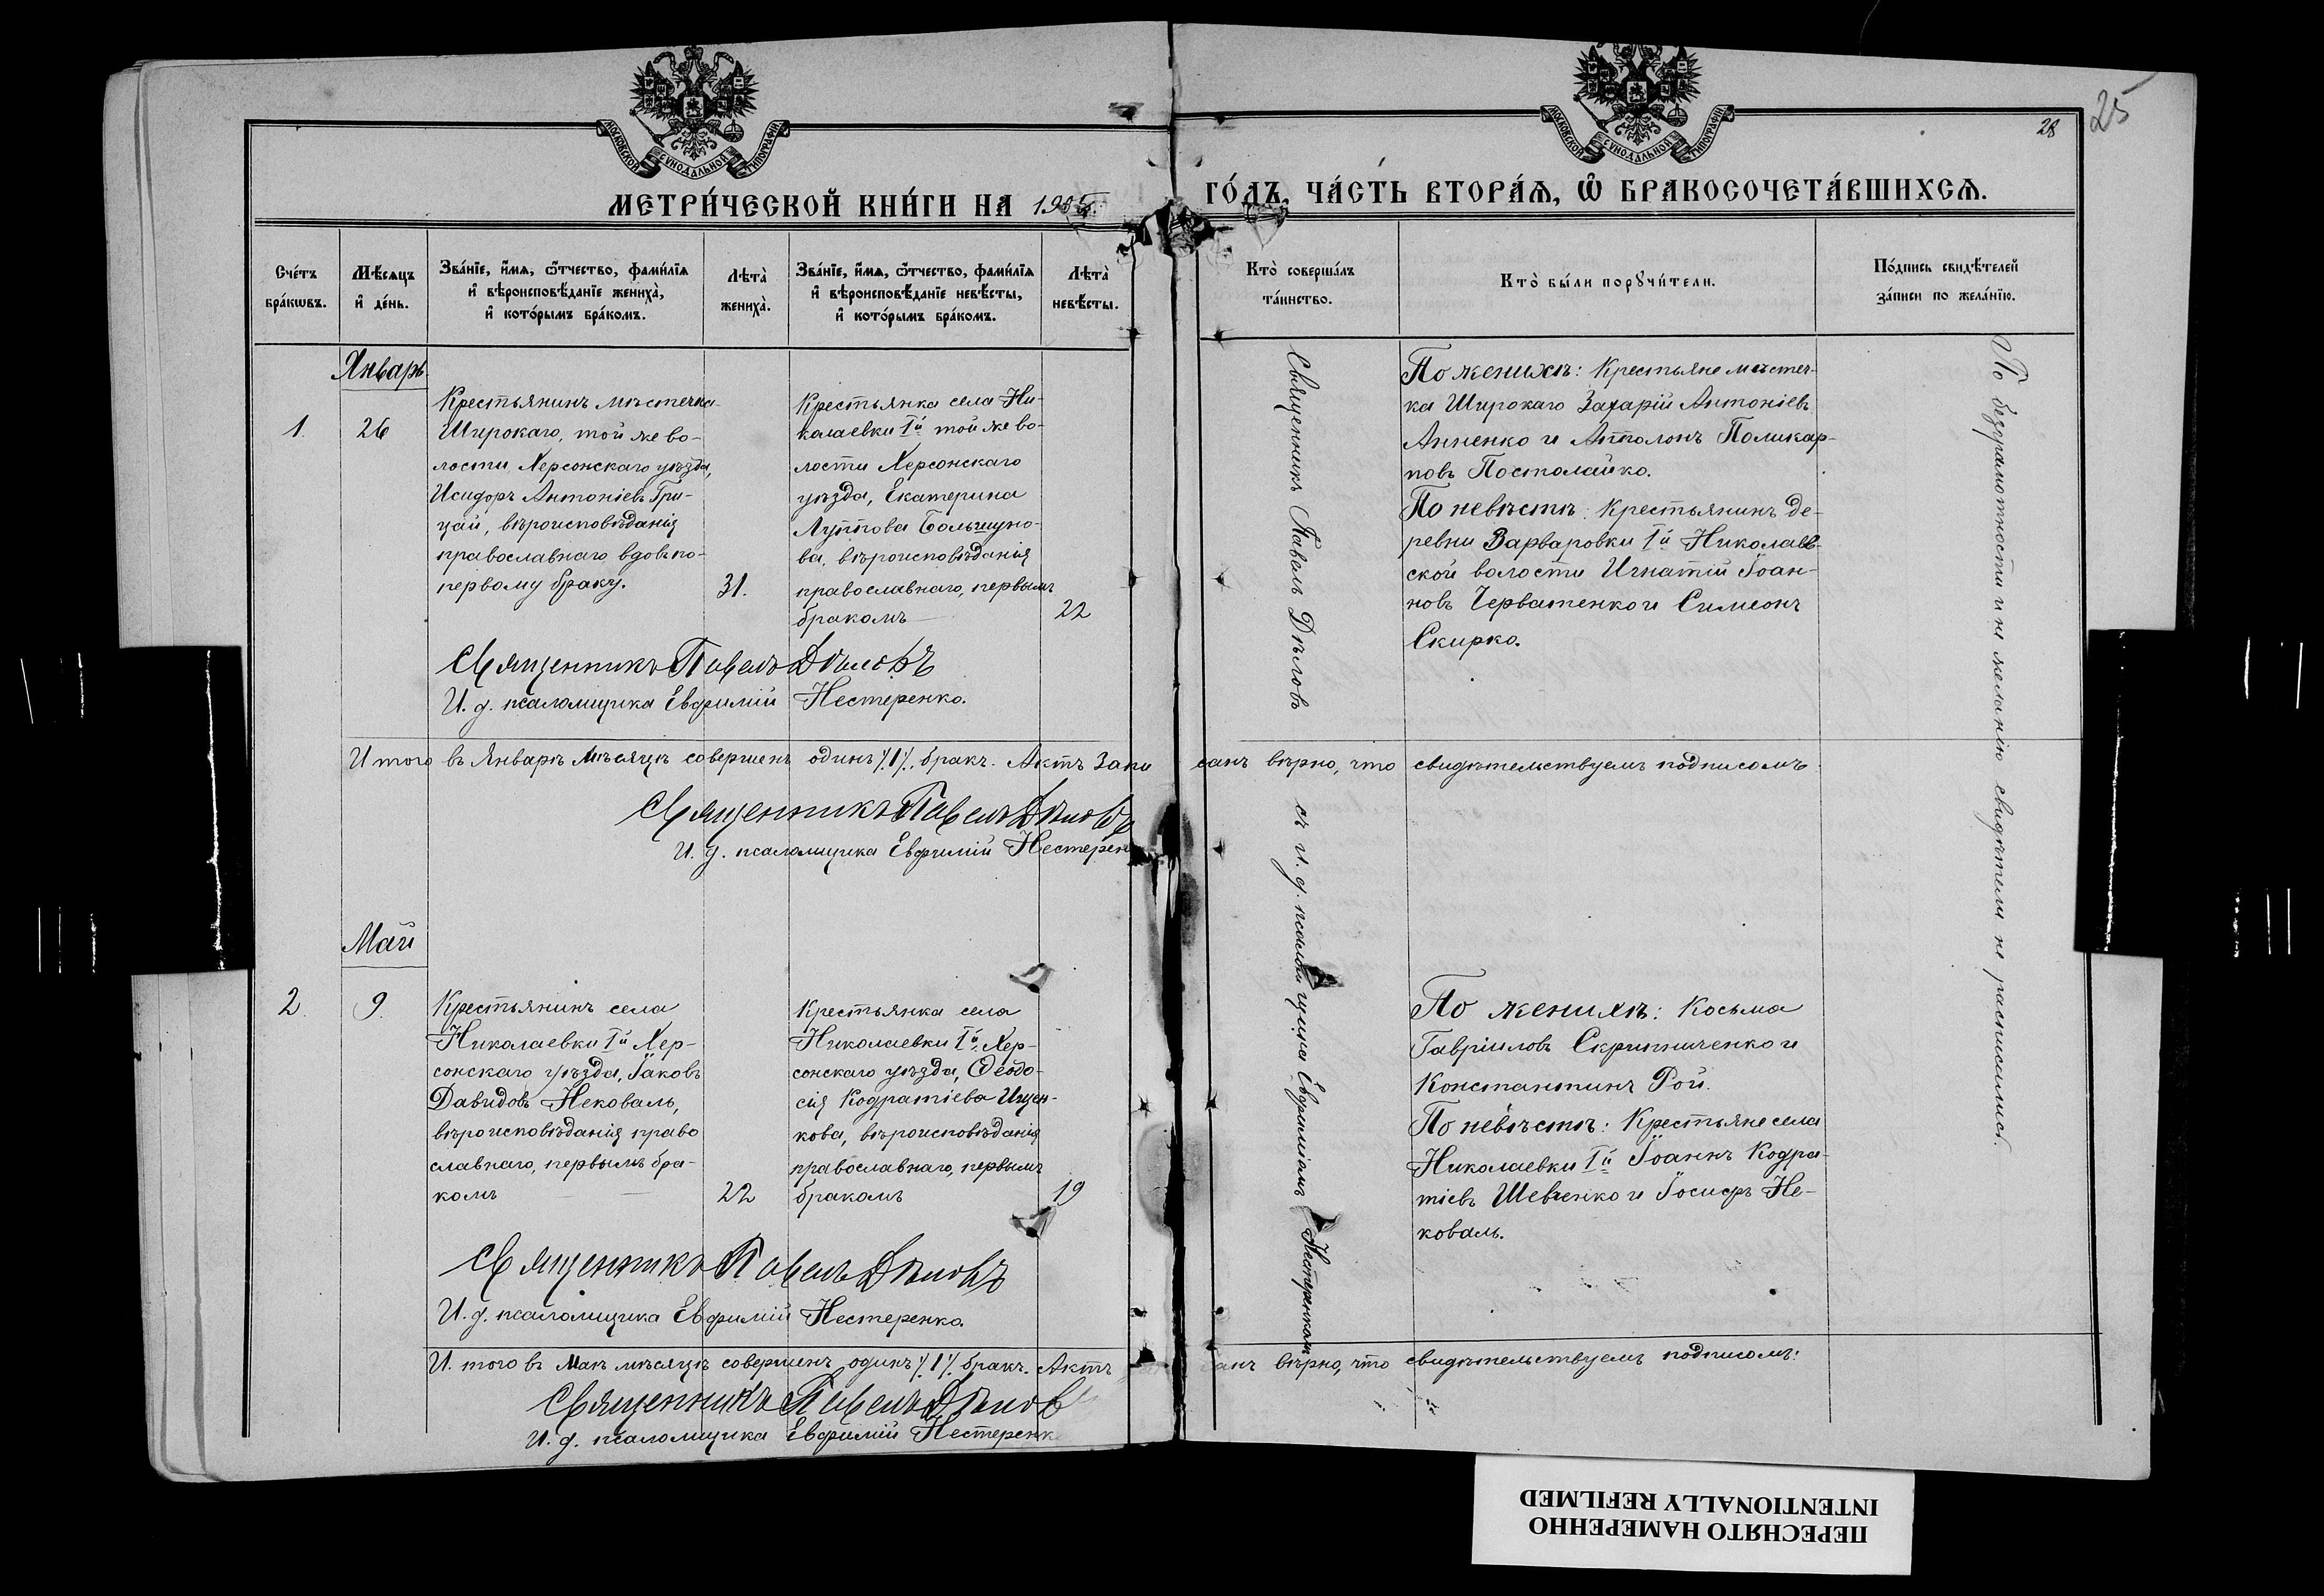 25
28
МОСКОВСКОЙ СѴНОДАЛЬНОЙ ТИПОГРАФІИ
МОСКОВСКОЙ СѴНОДАЛЬНОЙ ТИПОГРАФІИ
МЕТРИ́ЧЕСКОЙ КНИ́ГИ НА 1905
ГО́ДЪ, ЧА́СТЬ ВТОРА́Ѧ, Ѡ҆ БРАКОСОЧЕТА́ВШИХСѦ.
Сче́тъ
бра́кωвъ.
Мѣ́сяцъ
и҆ де́нь.
Зва́нїе, и҆́мѧ, ѻ҆́тчество, фами́лїѧ
и҆ вѣроисповѣ́данїе жениха̀,
и҆ кото́рымъ бра́комъ.
Лѣта̀
жениха̀.
Зва́нїе, и҆́мѧ, ѻ҆́тчество, фами́лїѧ
и҆ вѣроисповѣ́данїе невѣ́сты,
и҆ кото́рымъ бра́комъ.
Лѣта̀
невѣ́сты.
Кто̀ соверша́лъ
та́инство.
Кто̀ бы́ли порꙋчи́тели.
По́дпись свидѣ́телей
за́писи по жела́нїю.
Январь
1.
26
Крестьянинъ мѣстечка
Широкаго, той же во-
лости, Херсонскаго уѣзда,
Исидоръ Антоніевъ Гри-
цай, вѣроисповѣданія
православнаго, вдовъ по-
первому браку.
31.
Крестьянка села Ни-
колаевки Iй той же во-
лости Херсонскаго
уѣзда, Екатерина
Луппова
ва, вѣроисповѣданія
православнаго, первымъ
бракомъ
22
Священникъ Павелъ Дѣловъ
И. д. псаломщика Евфимій Нестеренко.
Священникъ Павелъ Дѣловъ съ и. д. псаломщика Евфиміемъ Нестеренкомъ
По женихѣ: Крестьяне мѣстеч-
ка Широкаго Захарій Антоніевъ
Анненко и Апполонъ Поликар-
повъ Постолайко.
По невѣстѣ: Крестьянинъ де-
ревни Варваровки Iй Николаев-
ской волости Игнатій Іоан-
новъ Черватенко и Симеонъ
Скирко.
По безграмотности и не желанію свидѣтели не расписались.
Итого въ Январѣ мѣсяцѣ совершенъ одинъ ٪1٪ бракъ. Актъ запи
санъ вѣрно, что свидѣтельствуемъ подписомъ
Священникъ Павелъ Дѣловъ
И. д. псаломщика Евфимій Нестерен
Май
2.
9.
Крестьянинъ села
Николаевки Iй Хер-
сонскаго уѣзда, Іаковъ
Давидовъ Нековаль,
вѣроисповѣданія право
славнаго, первымъ бра-
комъ
22
Крестьянка села
Николаевки Iй Хер-
сонскаго уѣзда, Ѳеодо-
сія Кодратіева Ищен-
кова, вѣроисповѣданія
православнаго, первымъ
бракомъ
19
Священникъ Павелъ Дѣловъ
И. д. псаломщика Евфимій Нестеренко.
По женихѣ: Косьма
Гавріиловъ Скрипниченко и
Константинъ Рой.
По невѣстѣ: Крестьяне села
Николаевки Iй Іоаннъ Кодра-
тіевъ Шевченко и Іосифъ Не-
коваль.
И. того въ Маѣ мѣсяцѣ совершенъ одинъ ٪1٪ бракъ. Актъ
анъ вѣрно, что свидѣтельствуемъ подписомъ:
Священникъ Павелъ Дѣлов
И. д. псаломщика Евфимій Нестеренк
ПЕРЕСНЯТО НАМЕРЕННО
INTENTIONALLY REFILMED